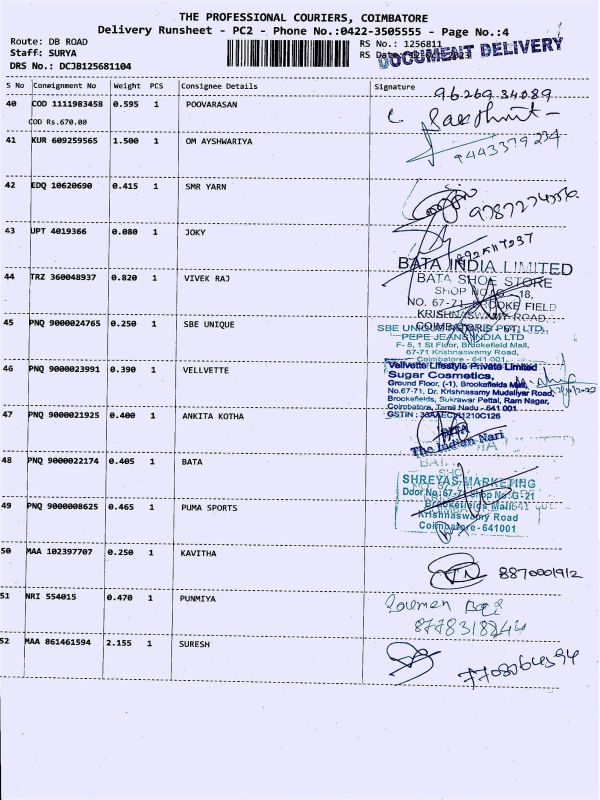 THE PROFESSIONAL COURIERS, COIMBATORE
Delivery Runsheet - PC2 - Phone No.:0422-3505555 - Page No.:4
Route: DB ROAD
Staff: SURYA
DRS No.: DCJB125681104
RS No.: 1256811
RS Date:
DOCUMENT DELIVERY
S No Consignment No Weight PCS Consignee Details Signature
40 COD 1111983458 0.595 1 POOVARASAN 9626934089
COD Rs.670.00
41 KUR 609259565 1.500 1 OM AYSHWARIYA 9443379234
42 EDQ 10620690 0.415 1 SMR YARN
43 UPT 4019366 0.080 1 JOKY
BATA INDIA LIMITED
44 TRZ 360048937 0.820 1 VIVEK RAJ
BATA SHOE STORE
SHOP NO G - 18,
NO. 67-71, BROOKE FIELD
KRISHNASWAMY ROAD
45 PNQ 9000024765 0.250 1 SBE UNIQUE
PEPE JEANS INDIA LTD
F- 5, 1 St Floor, Brookefield Mall,
67-71 Krishnaswamy Road,
Coimbatore - 641 001.
46 PNQ 9000023991 0.390 1 VELLVETTE
Vellvette Lifestyle Private Limited
Sugar Cosmetics,
Ground Floor, (-1), Brookefields Mall,
No.67-71, Dr. Krishnasamy Mudaliyar Road,
Brookefields, Sukrawar Pettai, Ram Nagar,
Coimbatore, Tamil Nadu - 641 001
47 PNQ 9000021925 0.400 1 ANKITA KOTHA
The Indian Nari
48 PNQ 9000022174 0.405 1 BATA
SHREYAS MARKETING
Door No: 67-71 Shop No:G-21
49 PNQ 9000008625 0.465 1 PUMA SPORTS
Brookefields Mall
Krishnaswamy Road
Coimbatore-641001
50 MAA 102397707 0.250 1 KAVITHA 8870001912
51 NRI 554015 0.470 1 PUNMIYA
8778318244
52 MAA 861461594 2.155 1 SURESH